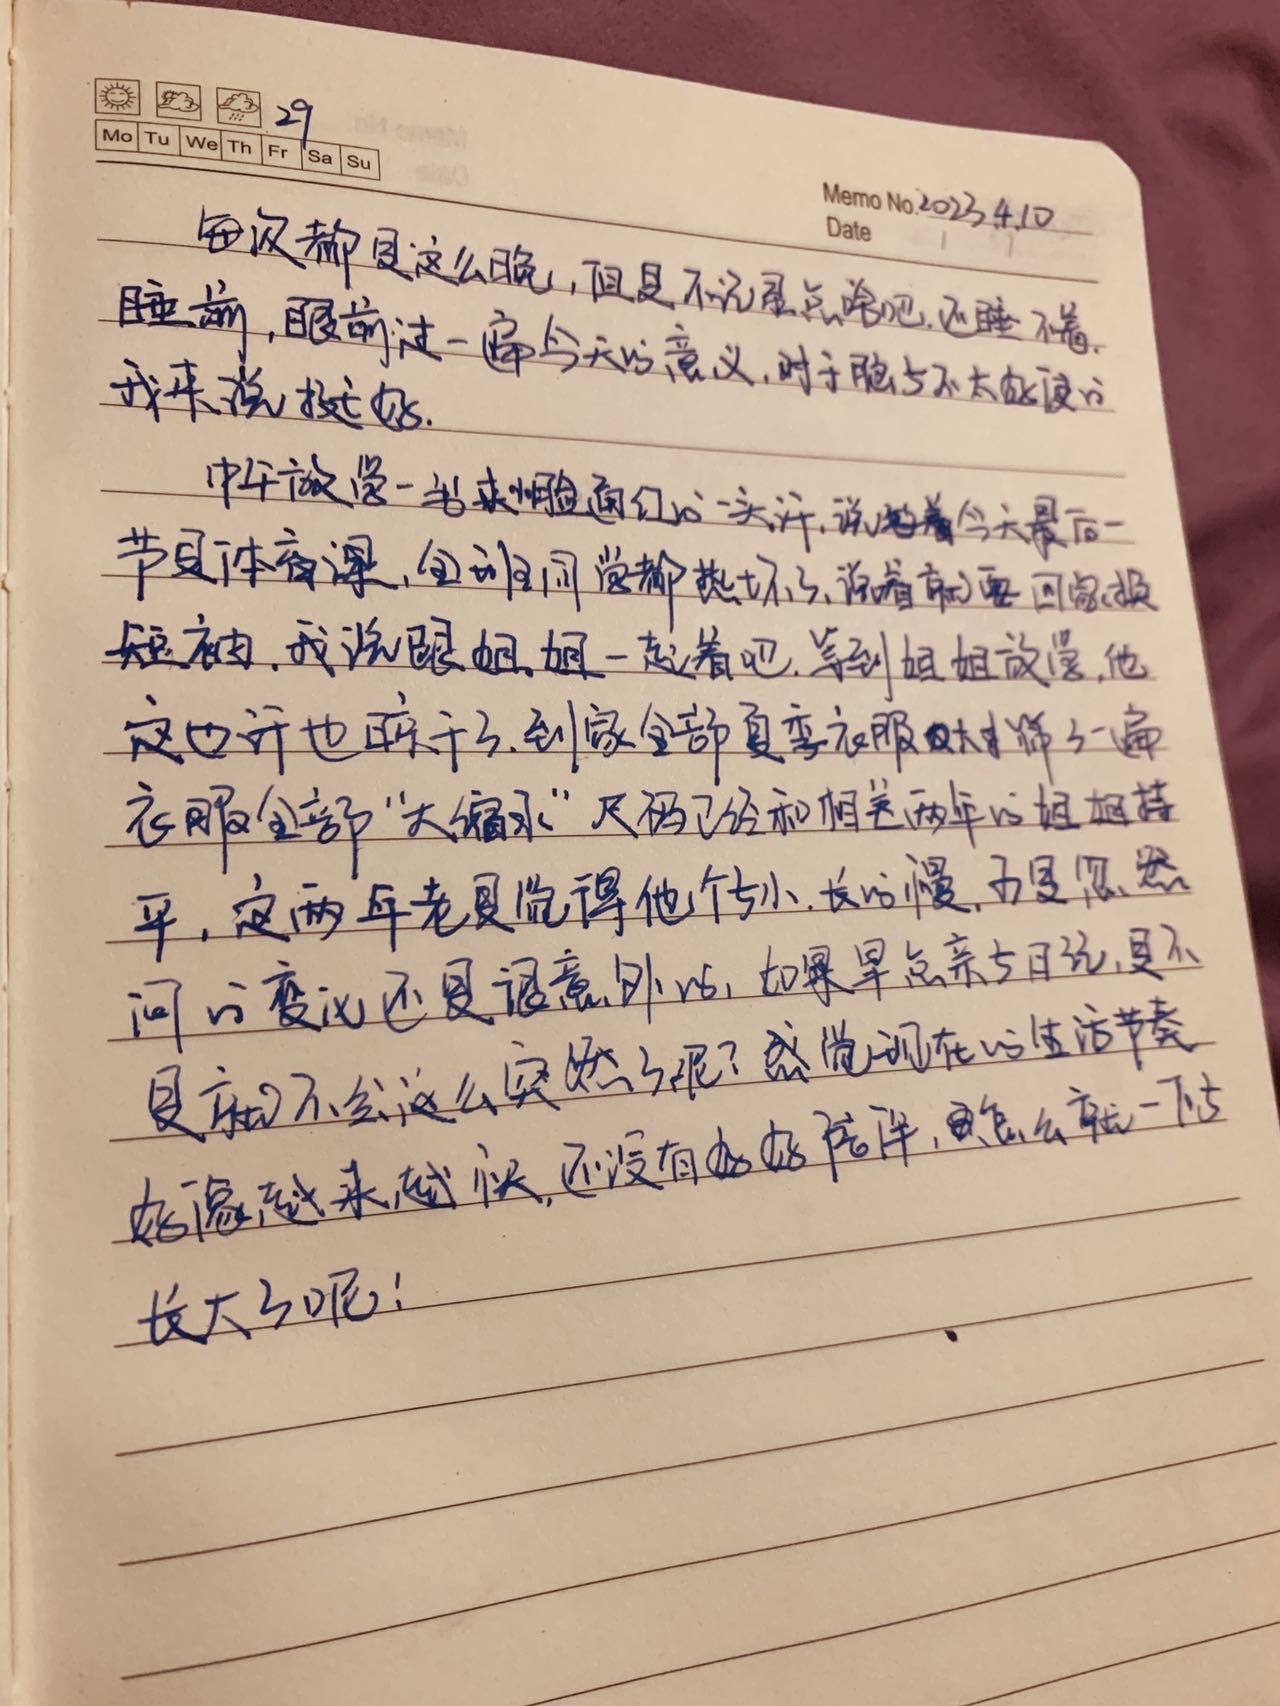 29
Mo Tu We Th Fr Sa Su
Memo No. 2023.4.10
Date
每次都是这么晚，但是不记录点啥吧，还睡不着，
睡前，眼前过一遍今天的意义，对于脑子不太好使的
我来说挺好．
中午放学一出来小脸通红的一头汗，说着今天最后一
节是体育课，全班同学都热坏了，说着就要回家换
短袖，我说跟姐姐一起着吧．等到姐姐放学，他
这也汗也晾干了．到家全部夏季衣服筛了一遍
衣服全部“大缩水”尺码已经和相差两年的姐姐持
平，这两年老是觉得他个子小．长的慢，可是忽然
间的变化还是很意外的，如果早点亲子日记，是不
是就不会这么突然了呢？感觉现在的生活节奏
好像越来越快，还没有好好陪伴，怎么就一下子
长大了呢！